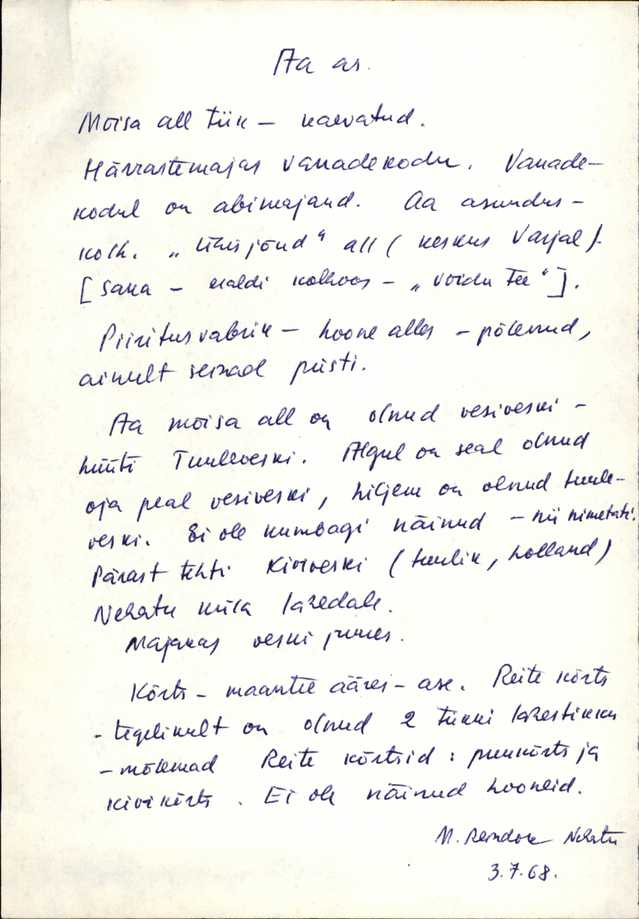 Aa as.
Mõisa all tiik – kaevatud.
Härrastemajas vanadekodu. Vanade-
kodul on abimajand. Aa asundus –
kolh. „Ühisjõud“ all (keskus Varjal).
[Saka – eraldi kolhoos – „Võidu Tee“].
Piiritusvabrik – hoone alles – põlenud,
ainult seinad püsti.
Aa mõisa all on olnud vesiveski –
hüüti Tuuleveski. Algul on seal olnud
oja peal vesiveski, hiljem on olnud tuule-
veski. Ei ole kumbagi näinud – nii nimetati.
Pärast tehti Kiviveski (tuulik, holland)
Nehatu küla lähedale.
Majakas veski juures.
Kõrts – maantee ääres – ase. Reite kõrts
– tegelikult on olnud 2 tükki
– mõlemad Reite kõrtsid : puukõrts ja
kivikõrts. Ei ole näinud hooneid.
Nehatu
3.7.68.